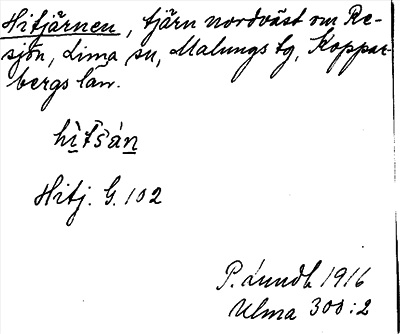 Hitjärnen, tjärn nordväst om Re-
sjön, Lima sn, Malungs tg, Koppar-
bergs län.
hìtšán
Hitj. G. 102
P. Lundb. 1916
Ulma 300:2